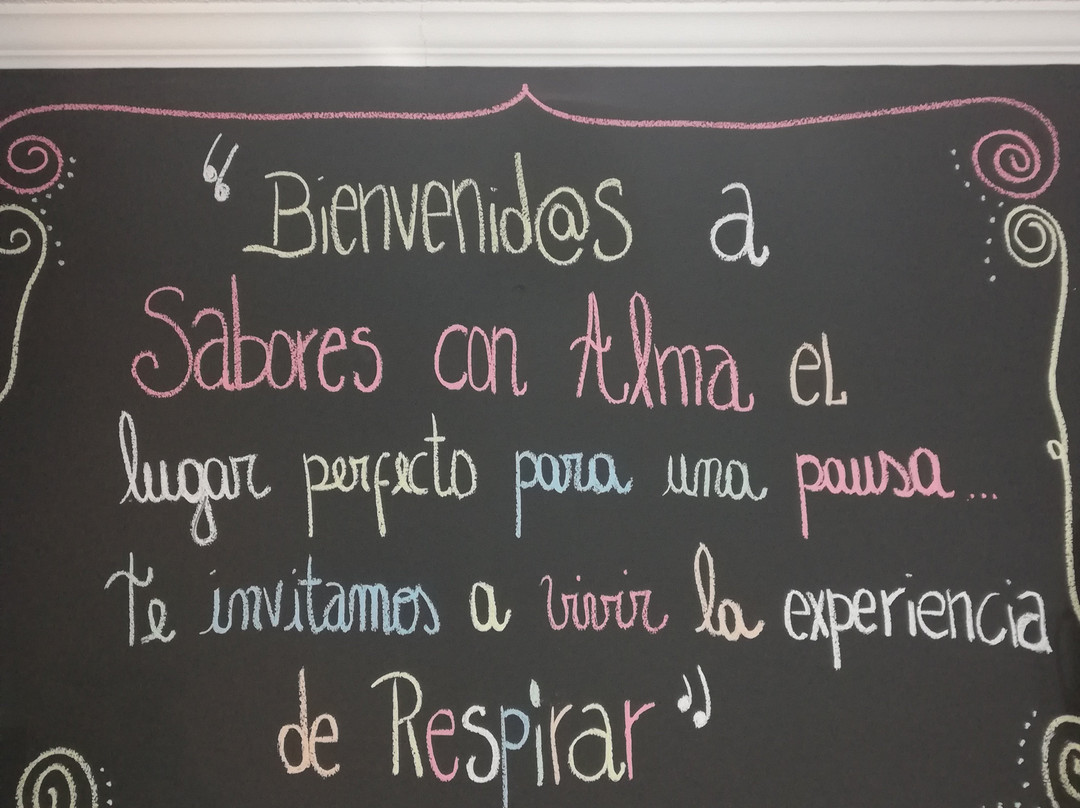 "Bienvenid@s a
Sabores con Alma el
lugar perfecto para una pausa...
Te invitamos a vivir la experiencia
de Respirar"